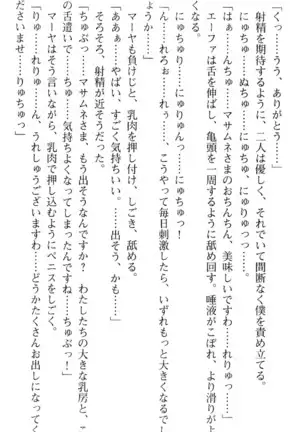 「くっ……うう、ありがとう……」
射精を期待するように、二人は優しく、それでいて間断なく僕を責め立てる。
にゅちゅ……ぬちゅ……にちゅ、にゅりゅっ……。
「はぁ……んちゅ、マサムネさまのおちんちん、美味しいですわ……れりゅ……」
エーファは舌を伸ばし、亀頭を一周するように舐め回す。唾液がこぼれ、より滑りが
くなる。
にゅちゅり……にゅりゅんっ……にゅちゅっ！
「ん……れろぉ……れぅ……、こうやって毎日刺激したら、いずれもっと大きくなるでし
ょうか……」
マーヤも負けじと、乳肉を押し付け、しごき、舐める。
「ああぁ……やばい、すごく気持ちいい……。も、出そう、かも……」
そろそろ、射精が近そうだった。
「ちゅぷっ……マサムネさま、もう出そうなんですか？　わたしたちの大きな乳房と、こ
の舌遣いで……ちゅ……気持ちよくなってしまったんですね……ちゅぷっ！」
マーヤはそう言いながら、乳肉で押し込むようにペニスをしごく。
「りゅ……れりゅん、うれしゅうございますわ……どうかたくさんお出しになってく
ださいませ……りゅちゅっ」